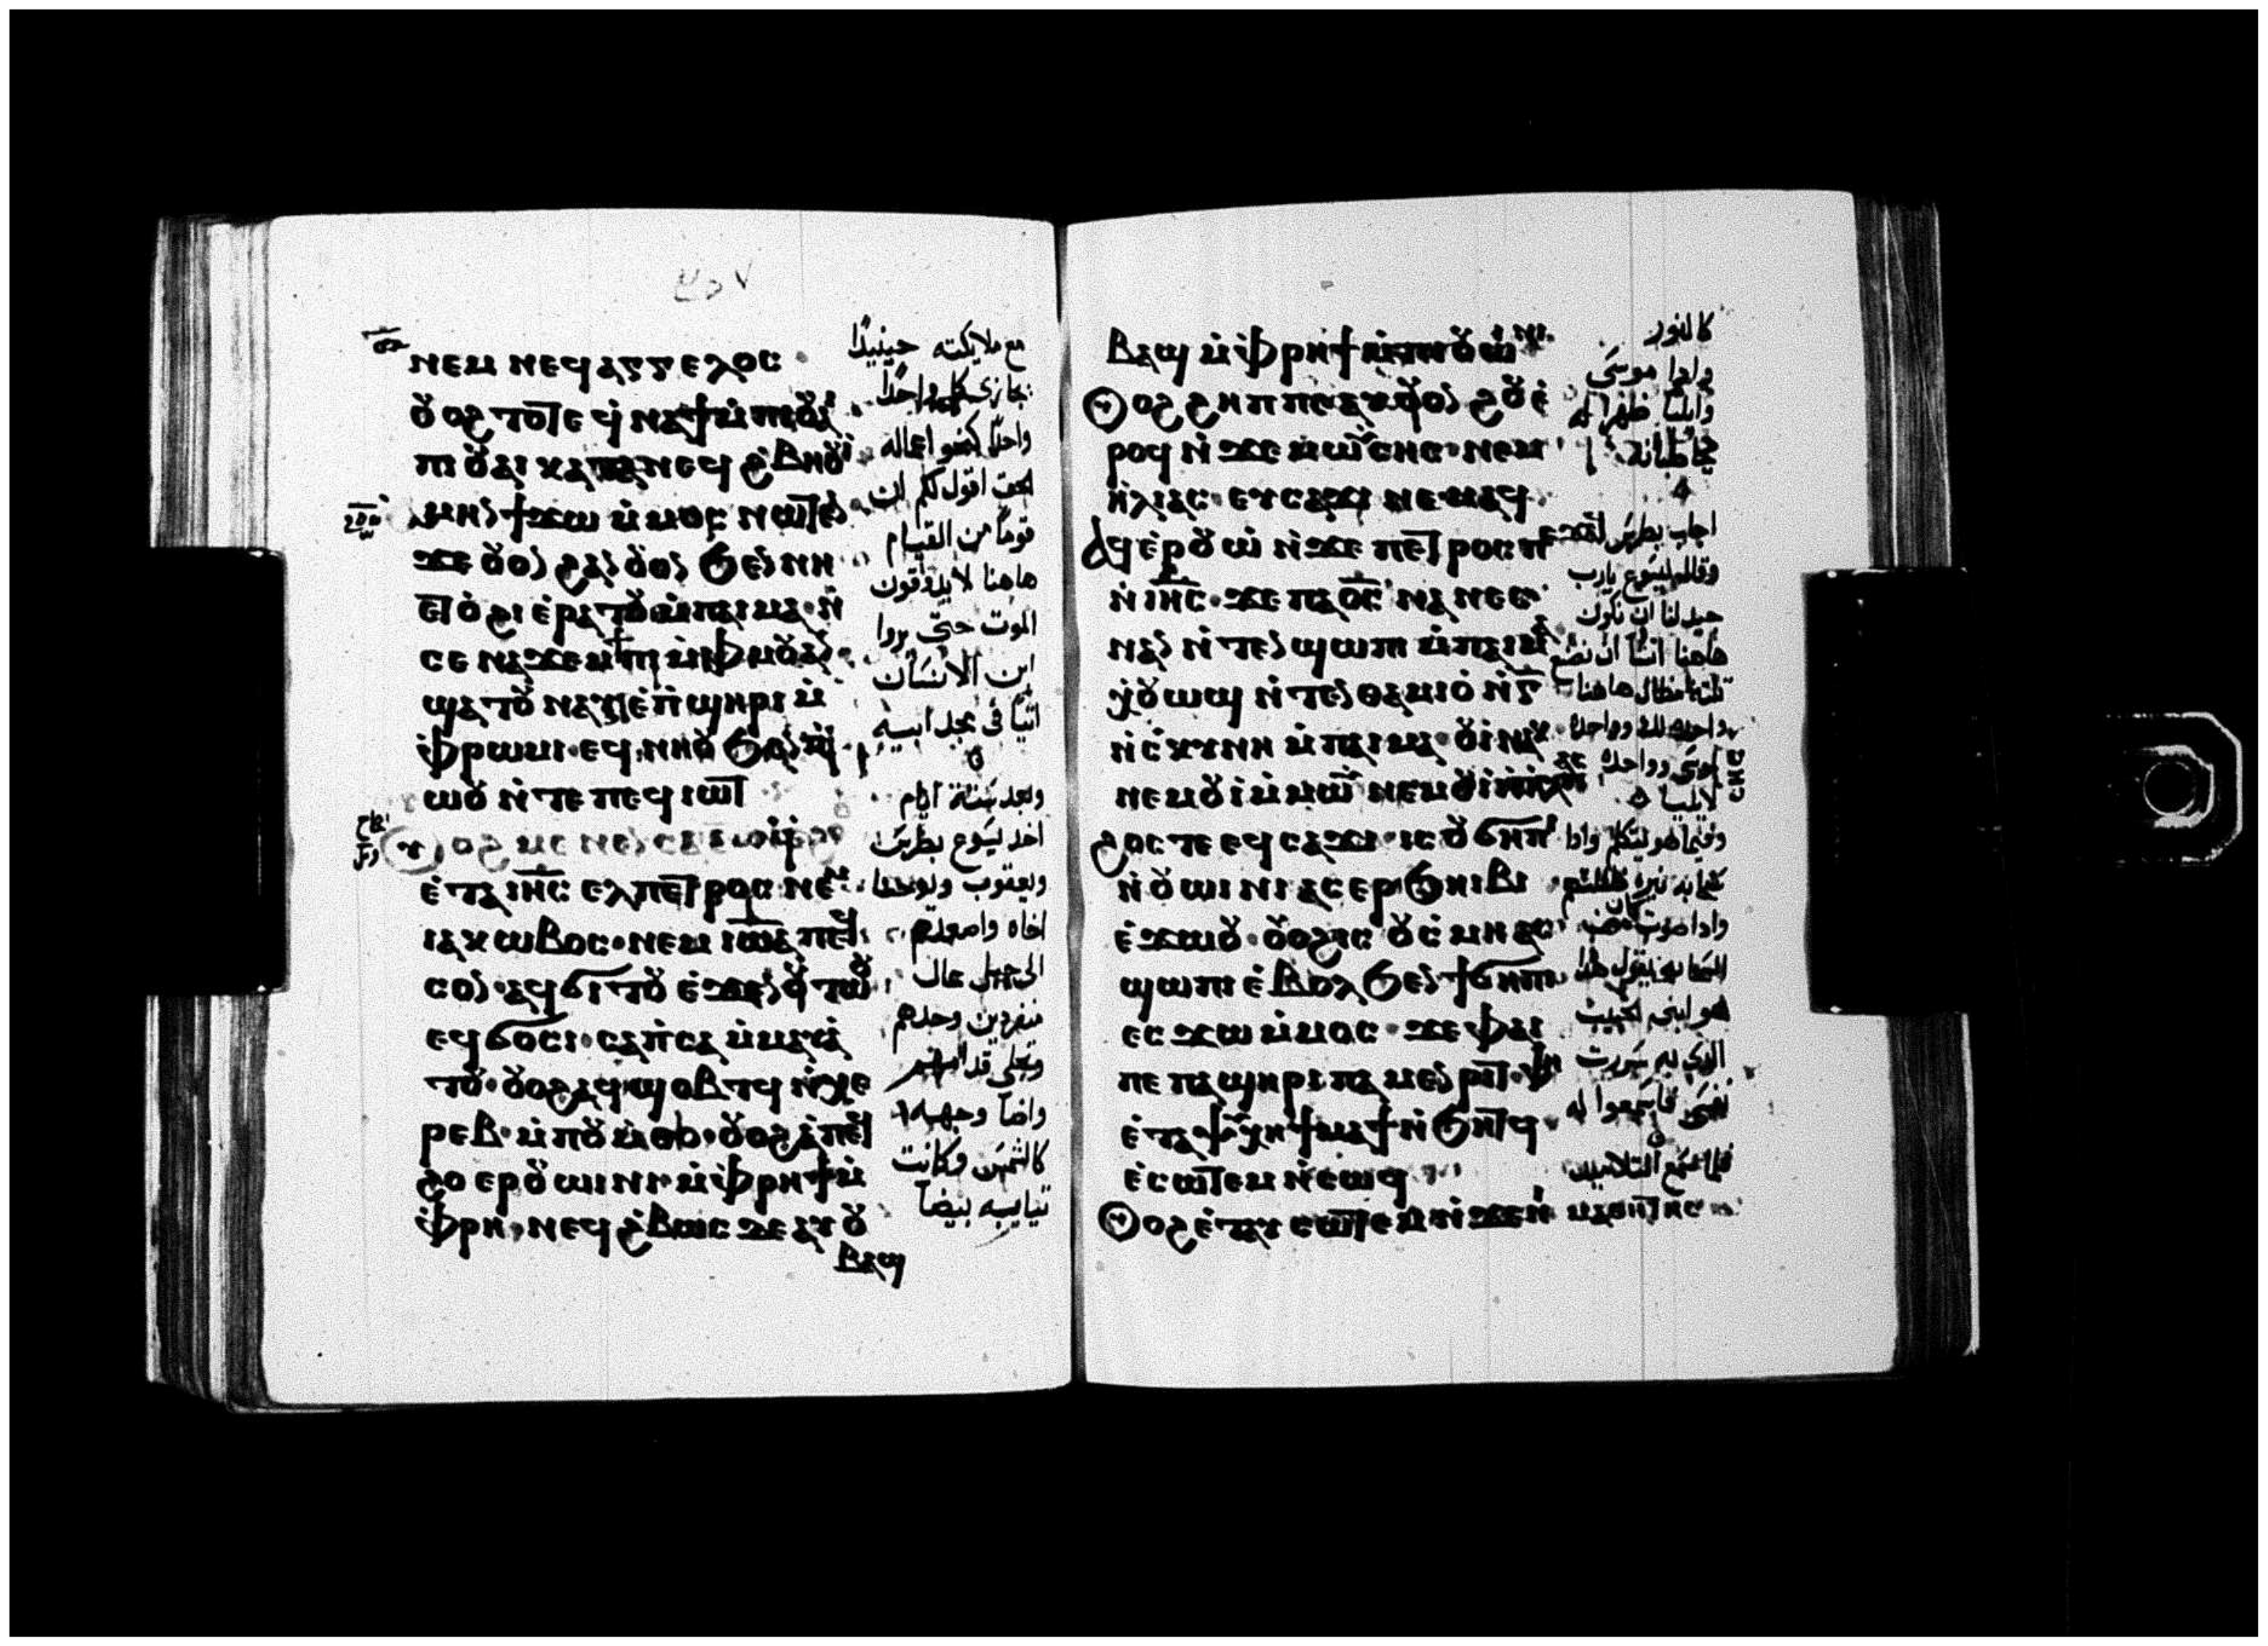 ⲛⲉⲙ ⲛⲉϥⲁⲅⲅⲉⲗⲟⲥ
ⲡⲓⲟⲩⲁⲓ ⲕⲁⲧⲁ ⲛⲉϥϩⲃⲏⲟⲩⲓ
ⲁⲙⲏⲛ ϯϫⲱ ⲙ̀ⲙⲟⲥ ⲛⲱⲧⲉⲛ
ϫⲉ ⲟⲩⲟⲛ ϩⲁⲛⲟⲩⲟⲛ ϧⲉⲛ ⲛⲏ
ⲉⲧⲟ̀ϩⲓ ⲉ̀ⲣⲁⲧⲟⲩ ⲙ̀ⲡⲁⲓⲙⲁ ⲛ̀
ⲥⲉⲛⲁϫⲉⲙϯⲡⲓ ⲙ̀ⲫⲙⲟⲩ ⲁⲛ
ϣⲁⲧⲟⲩⲛⲁⲩ ⲉ̀ⲡ̀ϣⲏⲣⲓ ⲙ̀
ⲫ̀ⲣⲱⲙⲓ ⲉϥⲛⲏⲟⲩ ϧⲉⲛ ⲡⲓ
ⲱⲟⲩ ⲛ̀ⲧⲉ ⲡⲉϥⲓⲱⲧ
ⲉ̀ⲧⲁ ⲓⲏⲥ ⲉⲗ ⲡⲉⲧⲣⲟⲥ ⲛⲉⲙ
ⲓⲁⲕⲱⲃⲟⲥ ⲛⲉⲙ ⲓⲱⲁ ⲡⲉϥ
ⲥⲟⲛ ⲁϥϭⲓⲧⲟⲩ ⲉ̀ϫⲉⲛ ⲟⲩⲧⲱⲟⲩ
ⲉϥϭⲟⲥⲓ ⲥⲁⲡ̀ⲥⲁ ⲙ̀ⲙⲁⲩⲁ
ⲧⲟⲩ ⲟⲩⲟϩ ⲁϥϣⲟⲃⲧϥ ⲛ̀ϩⲉ
ⲣⲉⲃ ⲙ̀ⲡⲟⲩⲙ̀ⲑⲟ ⲟⲩⲟϩ ⲁ̀ ⲡⲉϥ
ϩⲟ ⲉⲣⲟⲩⲱⲓⲛⲓ ⲙ̀ⲫ̀ⲣⲏϯ ⲙ̀
ⲫ̀ⲣⲏ ⲛⲉϥϩ̀ⲃⲱⲥ ⲇⲉ ⲁⲩⲟⲩ
ⲃⲁϣ
مع ملايكته حينيدًا
يجازى كل واحدًا
واحدًا كنحو اعماله
الحق اقول لكم ان
قومًا من القيام
هاهنا لا يدوقون
الموت حتى يروا
ابن الانسان
اتيًا فى مجد ابيه
وبعد ستة ايام
اخد يسوع بطرس
ويعقوب ويوحنا
اخاه واصعدهم
الى جبل عال
منفردين وحدهم
وتجلى قدامهم
واضا وجهه
كالشمس وكانت
تيابه بيضا
ⲃⲁϣ ⲙ̀ⲫ̀ⲣⲏϯ ⲙ̀ⲡⲓⲟⲩⲱⲓⲛⲓ
ⲣⲟϥ ⲛ̀ϫⲉ ⲙⲱⲩⲥⲏⲥ ⲛⲉⲙ
ⲏ̀ⲗⲓⲁⲥ ⲉⲩⲥⲁϫⲓ ⲛⲉⲙⲁϥ
ⲁϥⲉ̀ⲣⲟⲩⲱ̀ ⲛ̀ϫⲉ ⲡⲉⲧⲣⲟⲥ
ⲛ̀ⲓⲏⲥ ϫⲉ ⲡⲁⲟ̅ⲥ̅ ⲛⲁⲛⲉⲥ
ⲛⲁⲛ ⲛ̀ⲧⲉⲛϣⲱⲡⲓ ⲙ̀ⲡⲁⲓⲙⲁ
ⲭ̀ⲟⲩⲱϣ ⲛ̀ⲧⲉⲛⲑⲁⲙⲓⲟ̀ ⲛ̀ⲅ̅
ⲛ̀ⲥ̀ⲕⲩⲛⲏ ⲙ̀ⲡⲁⲓⲙⲁ ⲟⲩⲓ̀ ⲛⲁⲕ
ⲛⲉⲙ ⲟⲩⲓ̀ ⲙ̀ⲙⲱⲩⲥⲏⲥ ⲛⲉⲙ ⲟⲩⲓ̀ ⲛ̀ⲏⲗⲓⲁⲥ
ϩⲟⲥⲧⲉ ⲉϥⲥⲁϫⲓ ⲓⲥ ⲟⲩϭⲏⲡⲓ
ⲛ̀ⲟⲩⲱⲓⲛⲓ ⲁⲥⲉⲣϧⲏⲓⲃⲓ
ⲉ̀ϫⲱⲟⲩ ⲟⲩⲟϩ ⲓⲥ ⲟⲩⲥ̀ⲙⲏ ⲁⲥ
ϣⲱⲡⲓ ⲉ̀ⲃⲟⲗ ϧⲉⲛ ϯϭⲏⲡⲓ
ⲉⲥϫⲱ ⲙ̀ⲙⲟⲥ ϫⲉ ⲫⲁⲓ
ⲡⲉ ⲡⲁϣⲏⲣⲓ ⲡⲁⲙⲉⲛⲣⲓⲧ ⲫⲏ
ⲉ̀ⲧⲁ ⲧⲁⲯⲩⲭⲏ ϯⲙⲁϯ ⲛ̀ϧⲏⲧϥ
ⲉ̀ⲥⲱⲧⲉⲙ ⲛ̀ⲥⲱϥ
ⲟⲩⲟϩ ⲉ̀ⲧⲁⲩⲥⲱⲧⲉⲙ ⲛ̀ϫⲉ ⲛⲓ ⲙⲁⲑⲏⲧⲏⲥ
كالنور
وادا موسى
وايليا ظهرا له
يخاطبانه
اجاب بطرس
وقال ليسوع يارب
جيد لنا ان نكون
هاهنا اتشا ان نصنع
تلته مظال هاهنا
واحده لك وواحده
لموسى وواحده
لايليا
وفيما هو يتكلم وادا
سحابه نيره ظللتهم
وادا صوت كان من
السحابه يقول هدا
هو ابنى الحبيب
الدى به سررت
نفسى فاسمعوا له
فلما سمع التلاميد